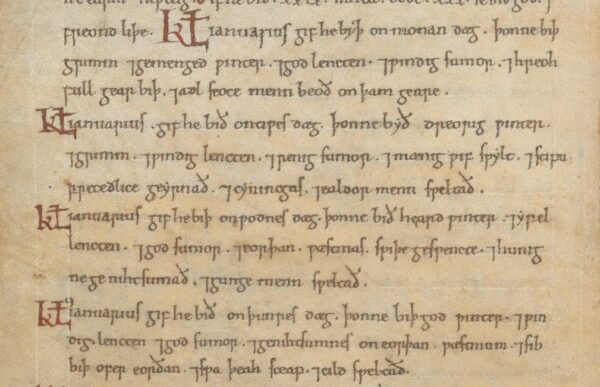 freond liþe. kł ianuarius gif he byþ on monan dæg. þonne biþ
grimm ⁊ gemenged ƿinter. ⁊ god lencten. ⁊ ƿindig sumor. ⁊ hreoh
full gear biþ. ⁊ adl seoce menn beoð on þam geare.
kł ianuarius. gif he bið on tiƿes dæg. þonne byð dreorig ƿinter.
⁊ grimm. ⁊ ƿindig lencten. ⁊ renig sumor. ⁊ mænig ƿif sƿylt. ⁊ scipu
frecedlice geyrnað. ⁊ cyningas. ⁊ ealdor menn sƿeltað.
kł ianuarius gif he biþ on ƿodnes dæg. þonne bið heard ƿinter. ⁊ yfel
lencten. ⁊ god sumor. ⁊ eorþan. ƿæsmas. sƿiþe gesƿencte. ⁊ hunig
ne ge nihtsumað. ⁊ gunge menn sƿeltað.
kł ianuarius gif he bið on þunres dæg. þonne biþ god ƿinter. ⁊ ƿin
dig. lencten ⁊ god sumor. ⁊ genihtsumnes on eorþan. ƿæstmum. ⁊ sib
biþ ofer eorðan. ⁊ sƿa þeah sceap. ⁊ cild sƿeltað.